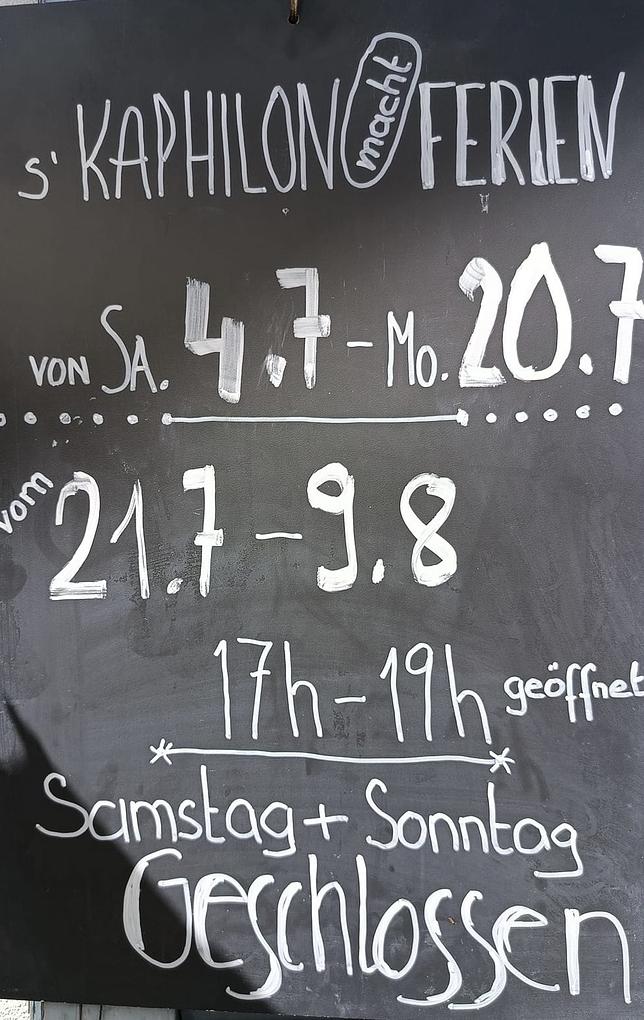 s' KAPHILON macht FERIEN
VON SA. 4.7 – Mo. 20.7
vom 21.7 – 9.8
17h – 19h geöffnet
Samstag + Sonntag
Geschlossen